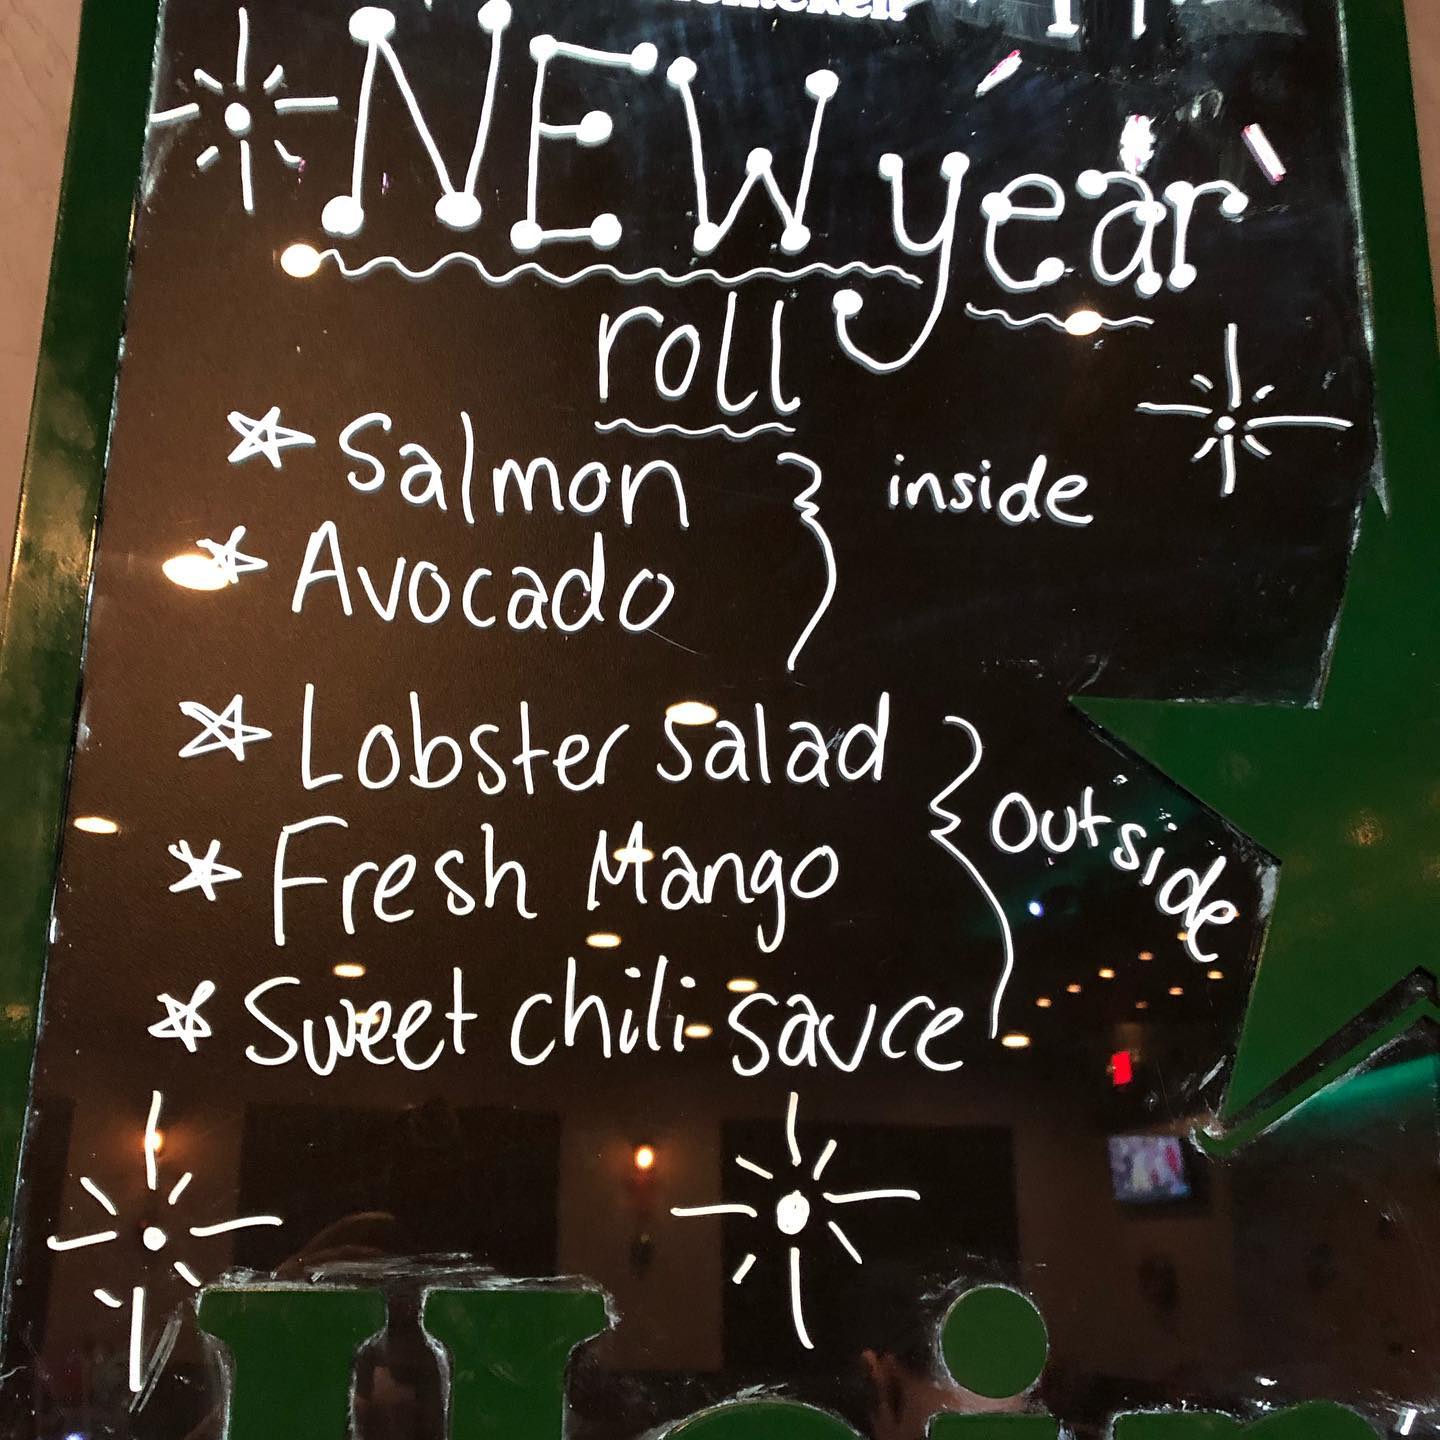 NEW year
roll
Salmon
Avocado
inside
Lobster salad
Fresh Mango
Sweet chili sauce
outside